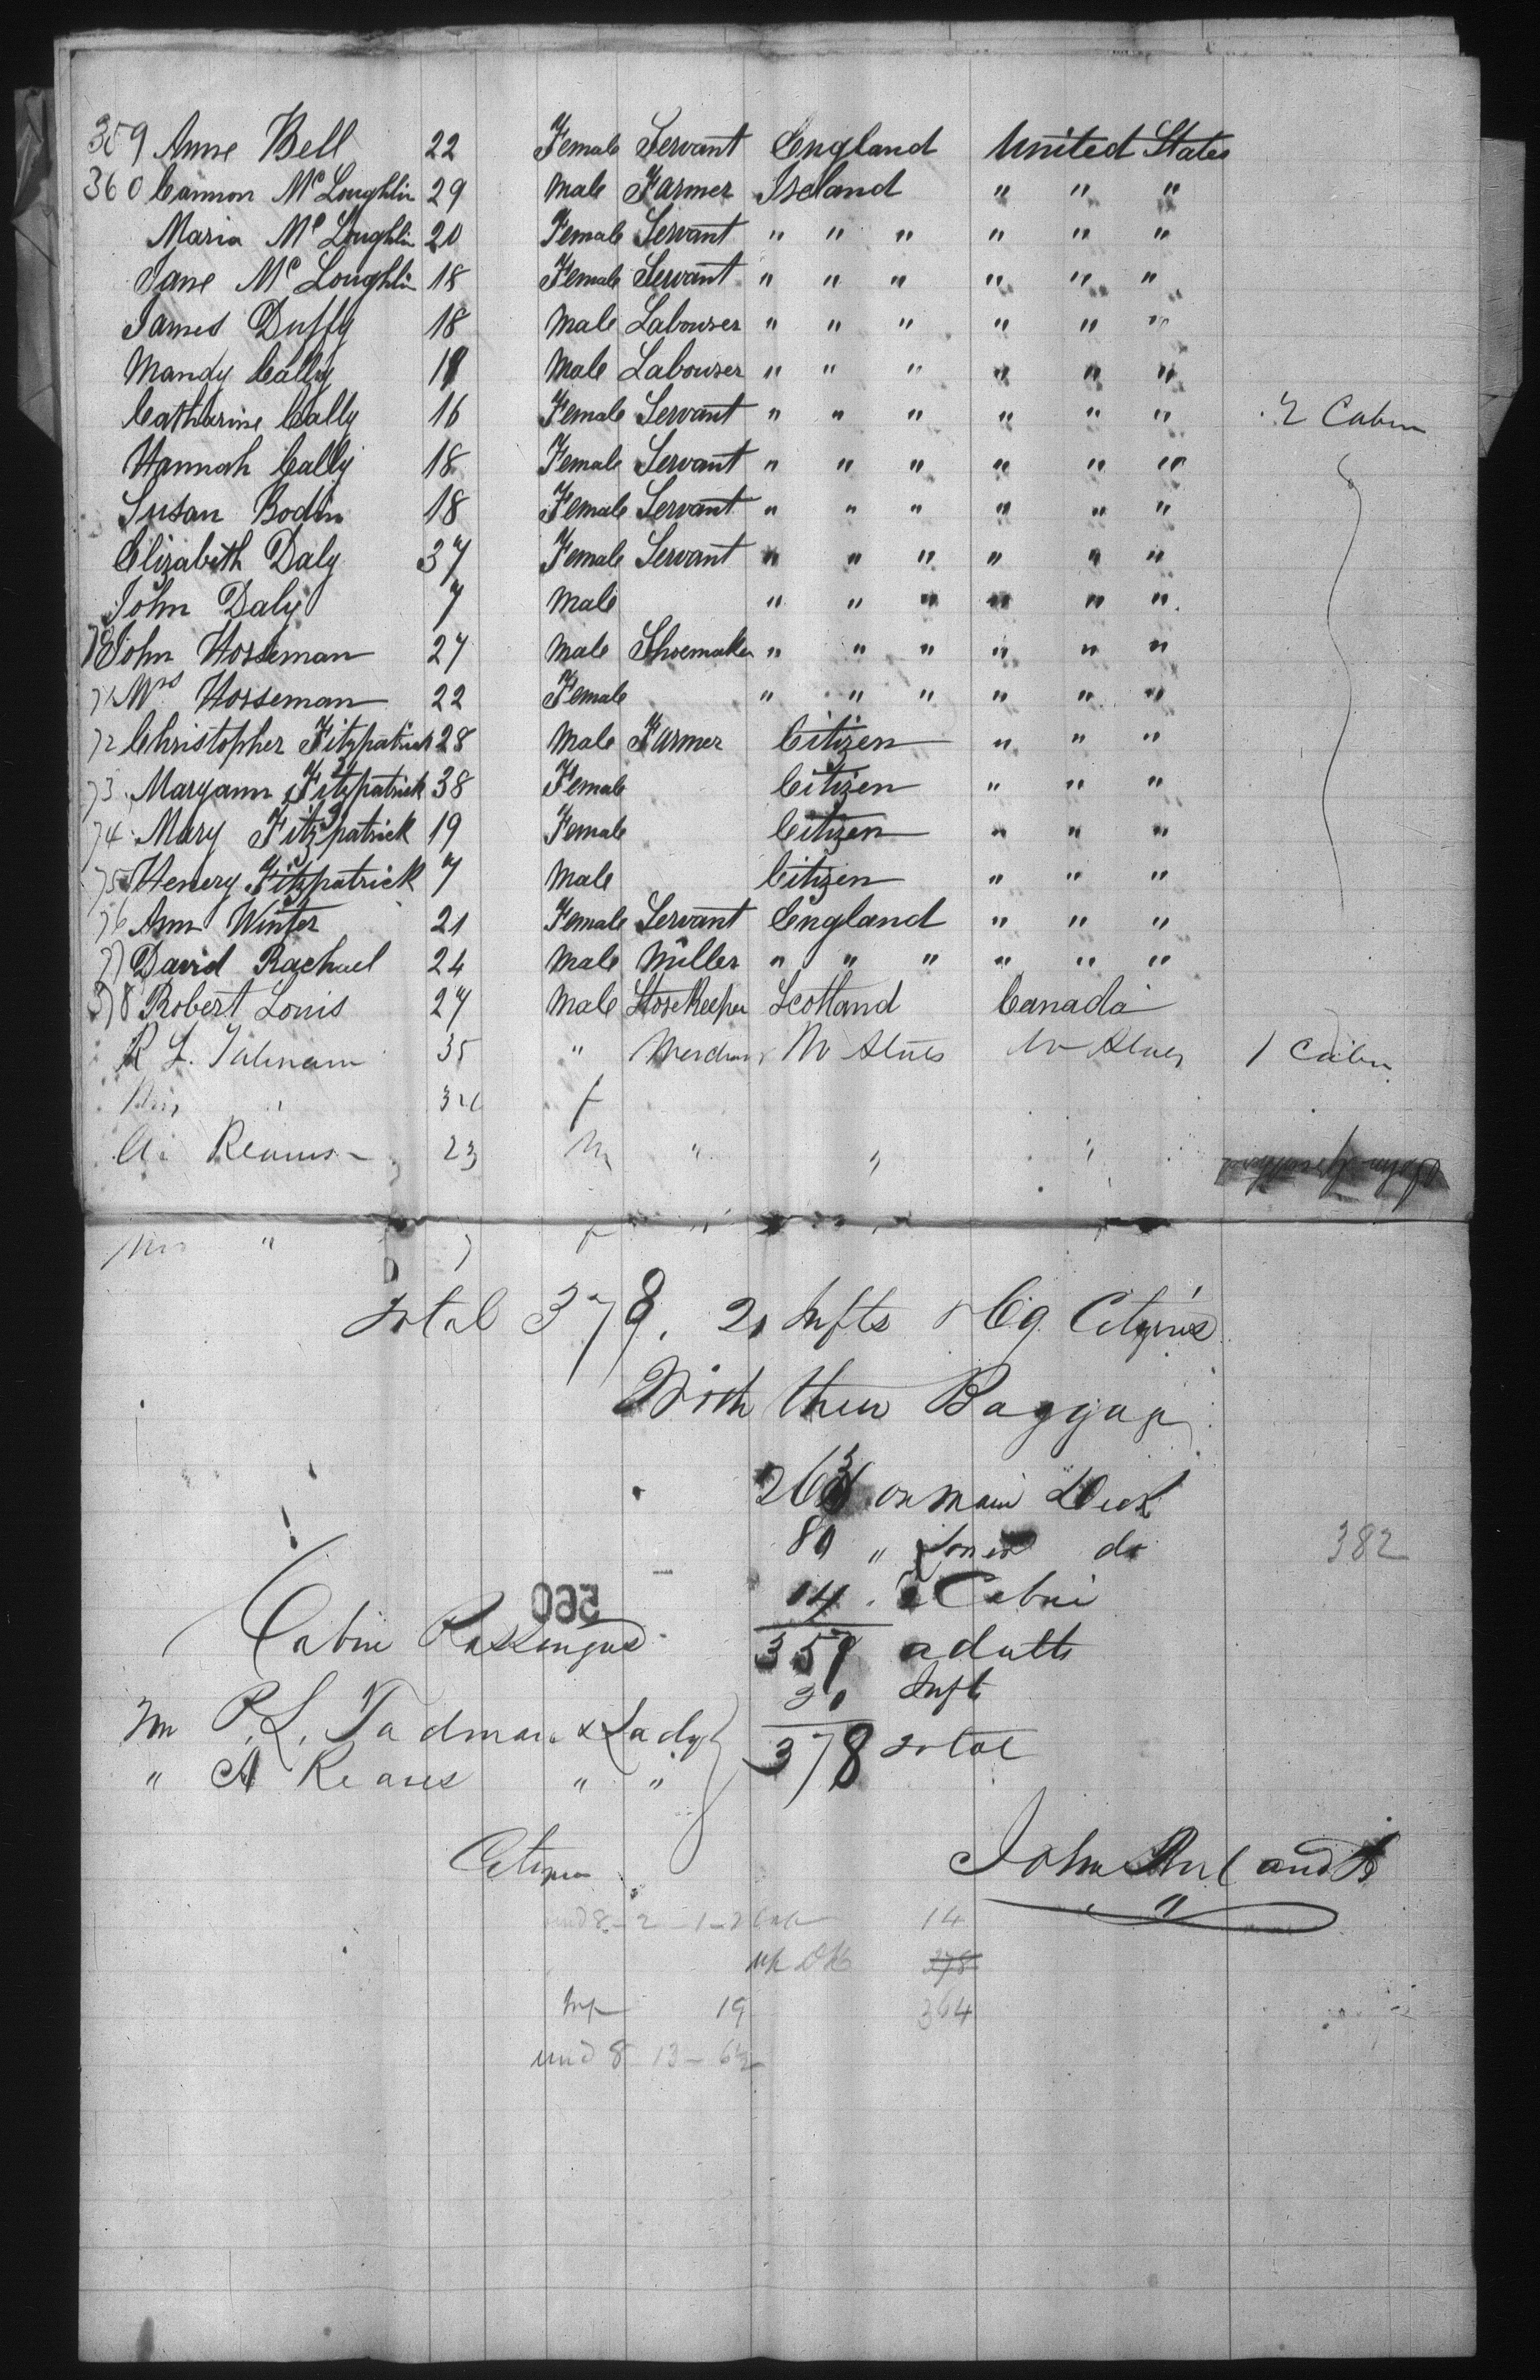 359 Anne Bell 22 Female Servant England United States
360 Cannon McLoughlin 29 Male Farmer Ireland " " "
Maria McLoughlin 20 Female Servant " " " " " "
Jane McLoughlin 18 Female Servant " " " " " "
James Duffy 18 Male Labourer " " " " " "
Mandy Cally Male Labourer " " " " " "
Catherine Cally 16 Female Servant " " " " " " 2 Cabin
Hannah Cally 18 Female Servant " " " " " "
Susan Bodin 18 Female Servant " " " " " "
Elizabeth Daly 37 Female Servant " " " " " "
John Daly 7 Male " " " " " "
John Horseman 27 Male Shoemaker " " " " " "
71 Mrs Horseman 22 Female " " " " " "
72 Christopher Fitzpatrick 28 Male Farmer Citizen " " "
73 Maryann Fitzpatrick 38 Female Citizen " " "
74 Mary Fitzpatrick 19 Female Citizen " " "
75 Henery Fitzpatrick 7 Male Citizen " " "
76 Ann Winter 21 Female Servant England " " "
77 David Rachael 24 Male Miller " " " " " "
378 Robert Louis 27 Male StoreKeeper Scotland Canada
R L. 35 " 1 Cabin
" f
Reams 23 M " " "
Mrs " f
Total 378. 21 Infts & Cg Citizens
With their Baggage
263 on Main Deck
80 " Lower do
382
14 " 2 Cabin
560
Cabin Passengers
357 adults
21 Infts
Mr P. L. Tadman & Lady
378 Total
" A Reams " "
Citizen
John
und 8 - 2 - 1 - 2 Cab 14
up Dk 278
Inf 19 364
und 8 13 - 6½